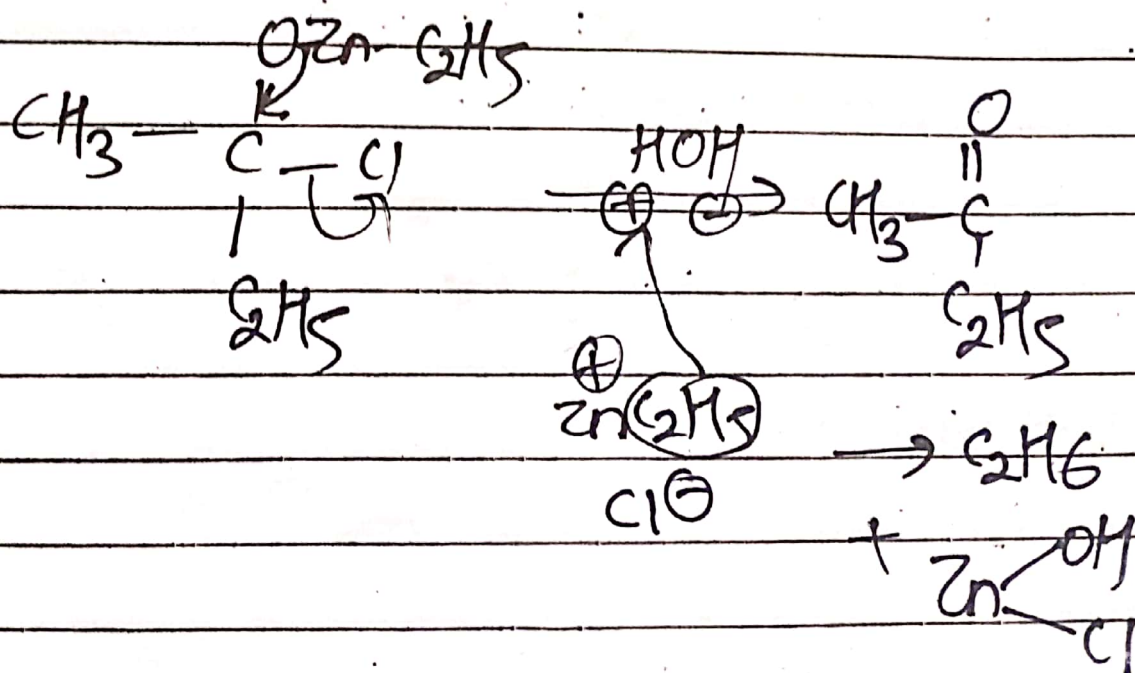 OZn-C2H5
CH3—C—Cl
C2H5
HOH
⊕ ⊖
→
O
||
CH3—C
C2H5
⊕
ZnC2H5
Cl⊖
→ C2H6
+ Zn
OH
Cl